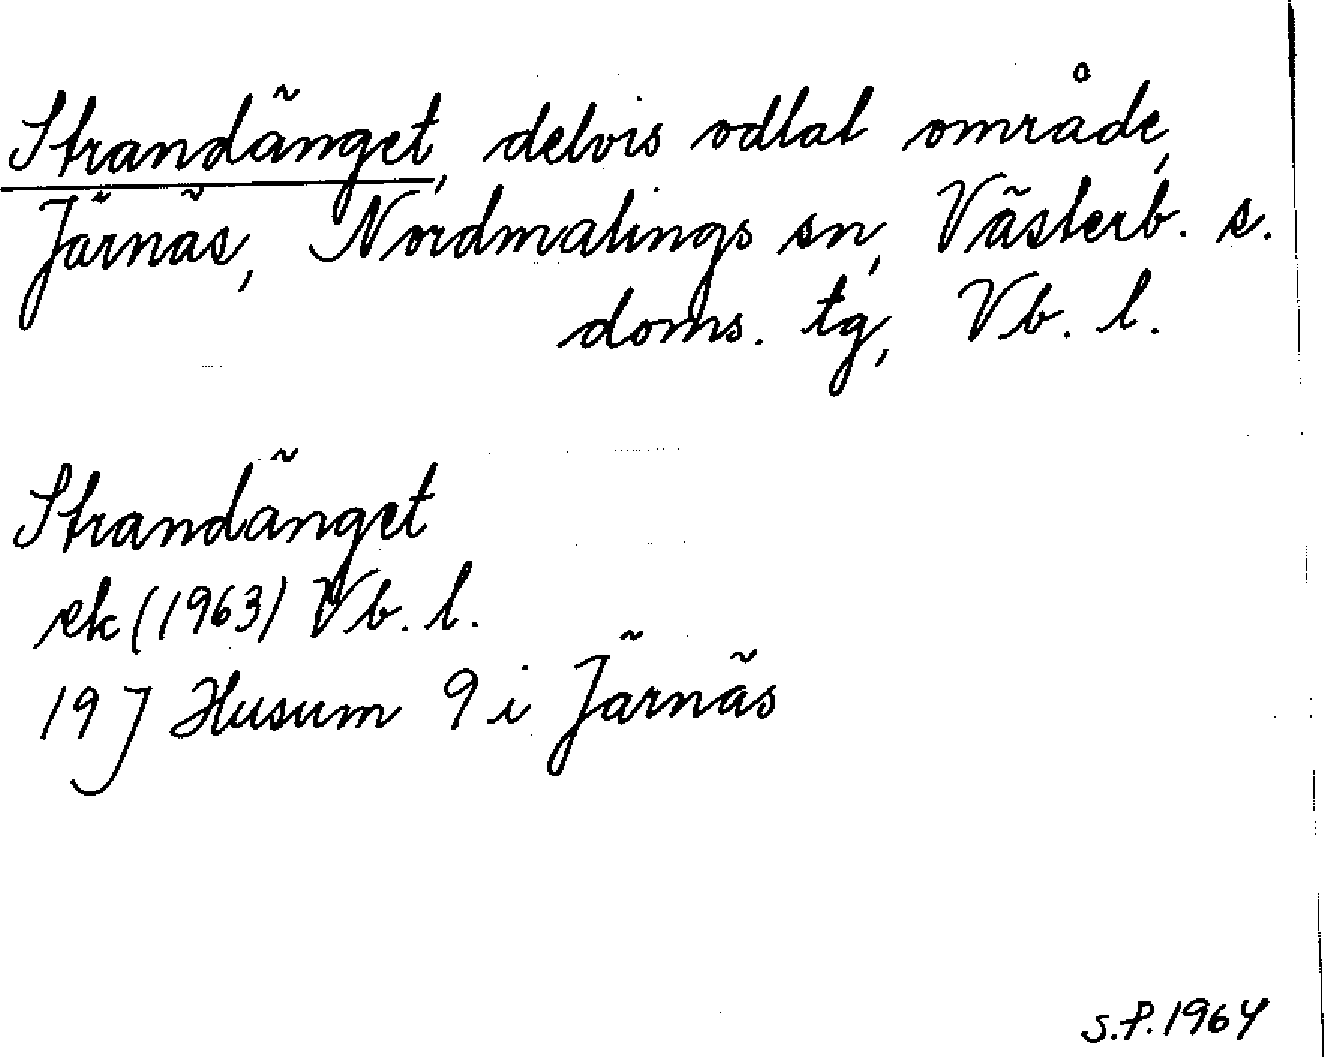 Strandänget, delvis odlat område,
Järnäs, Nordmalings sn, Västerb. s.
doms. tg, Vb. l.
Strandänget
ek (1963) Vb. l.
19 J Husum 9 i Järnäs
S.P. 1964